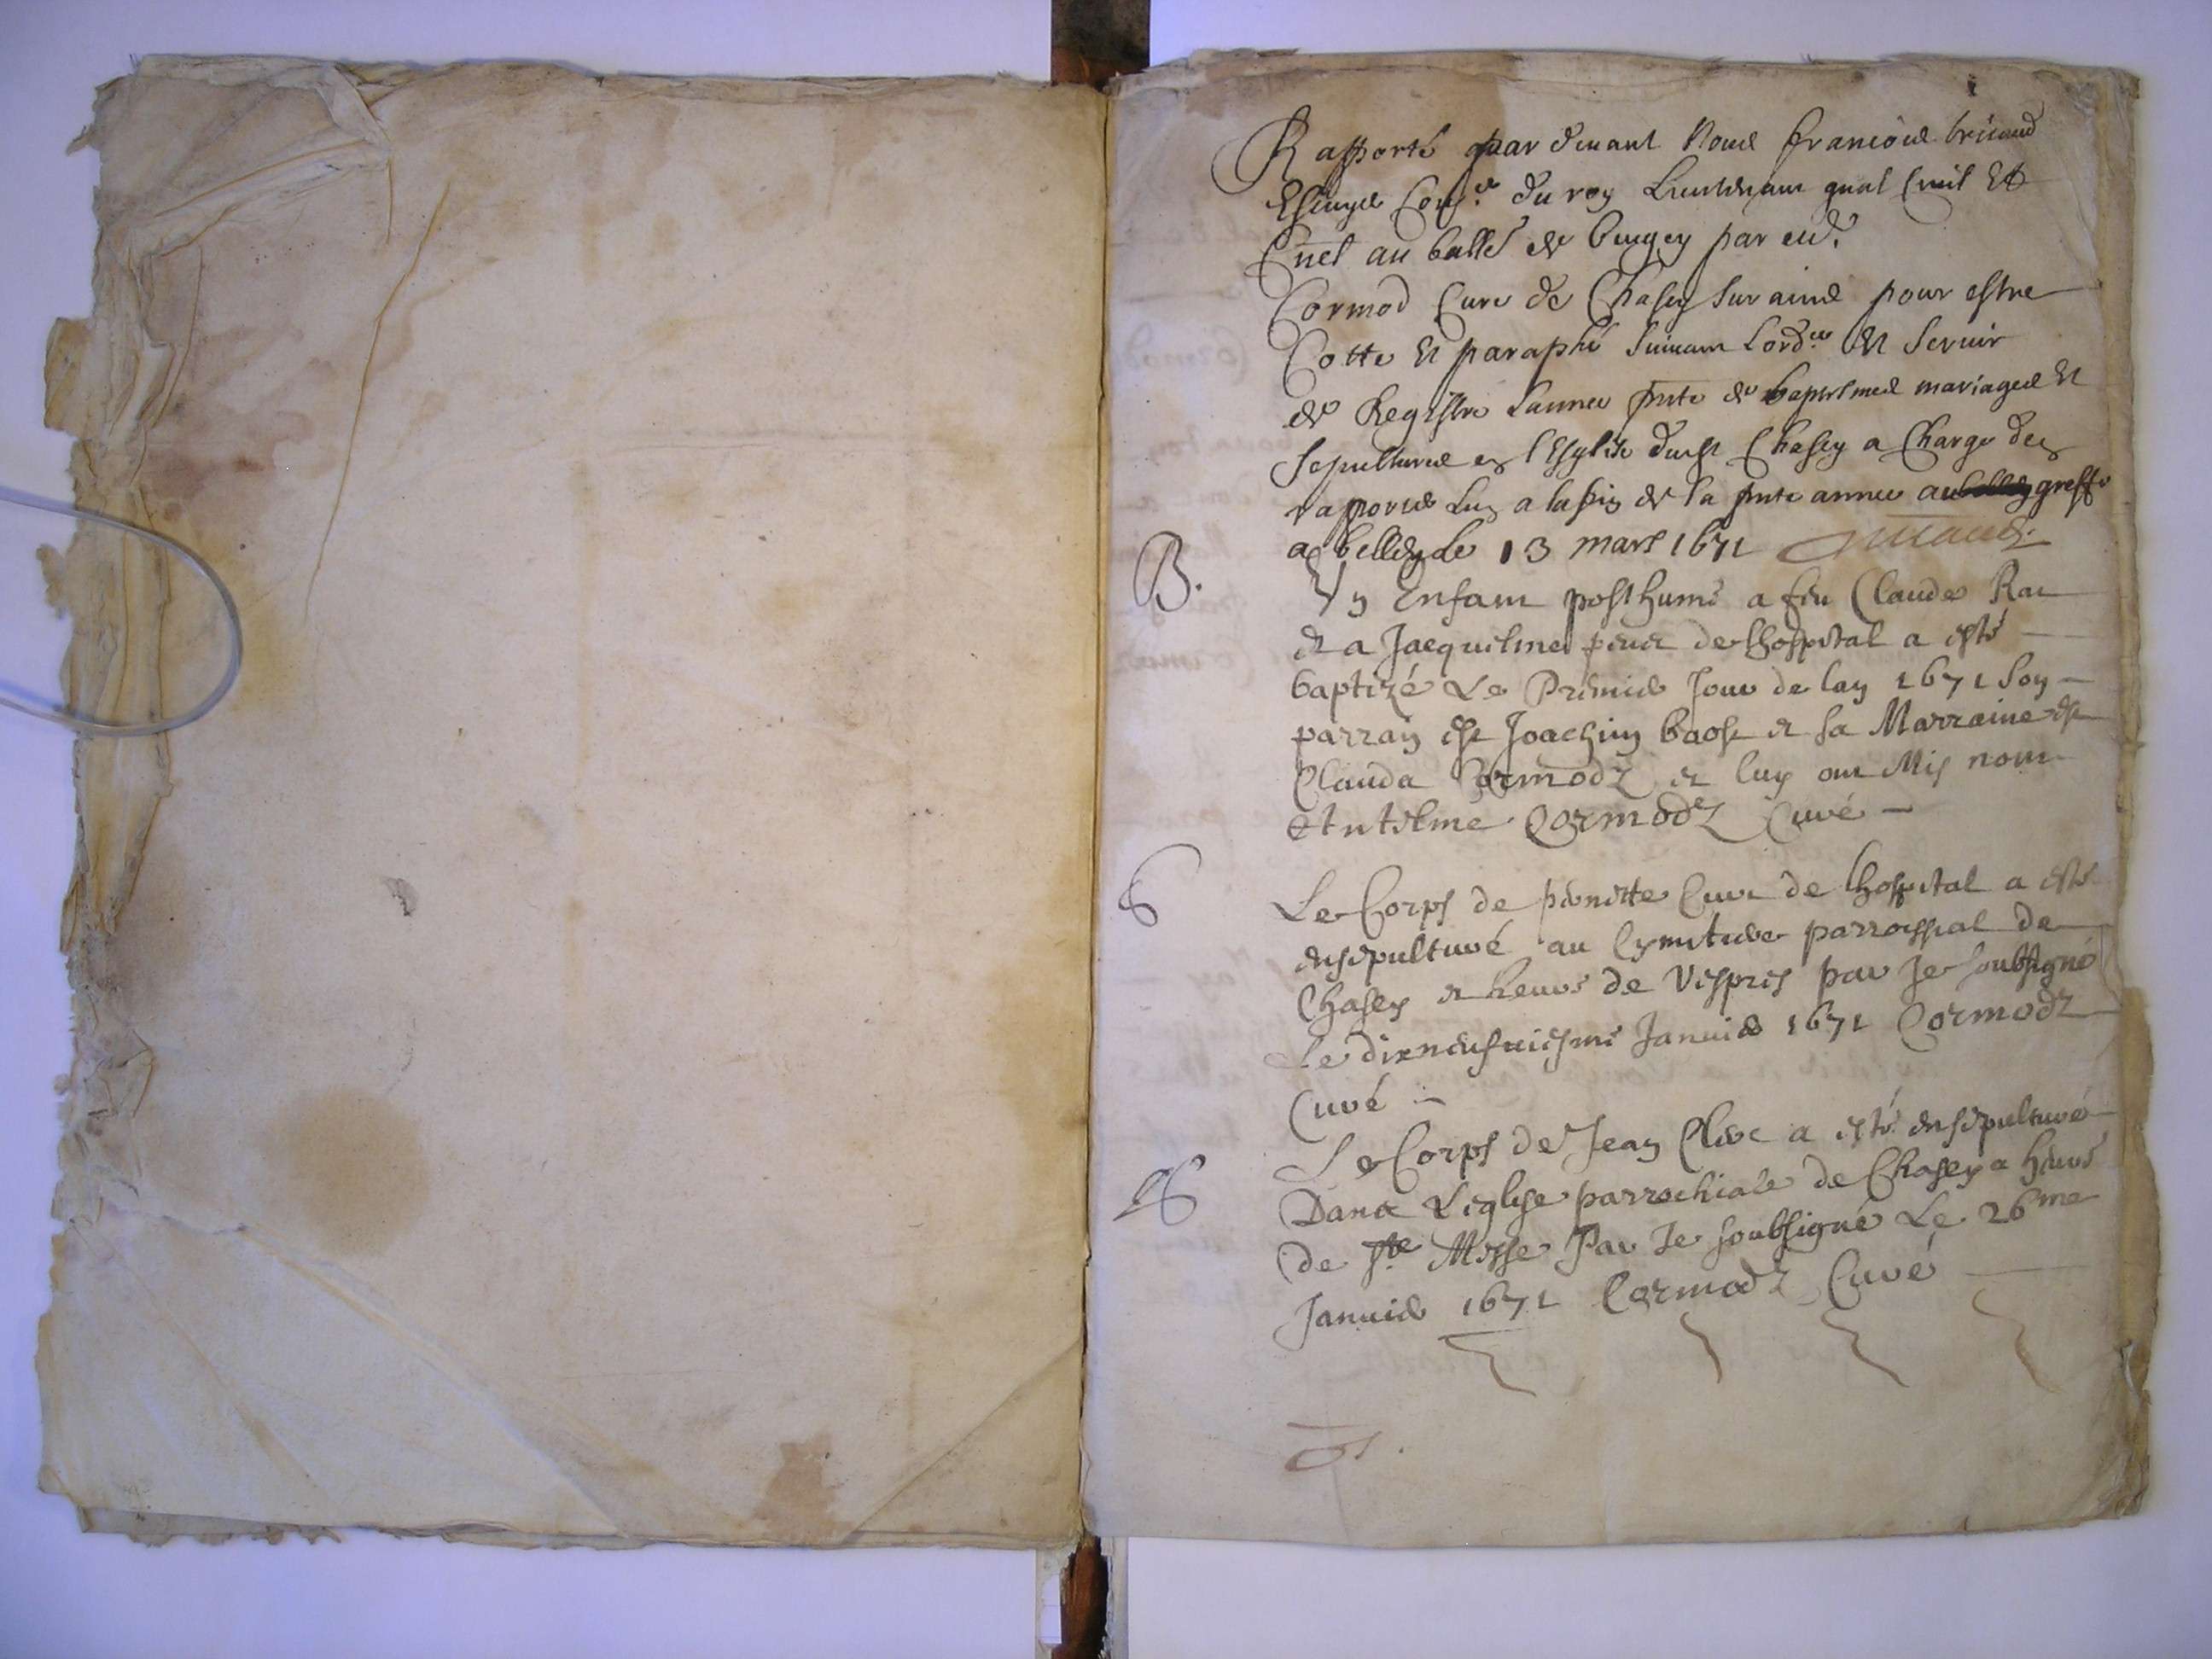 Rapporté par devant Nous francois
Escuyer Cons.er du roy Lieutenant gnal Civil Et
Cnel au balle de bugey par
Cormod Cure de Chasey sur aine pour estre
Cotte Et paraphé suivant lord.ce Et servir
de Registre lannee pnte de baptesmes mariages Et
sepultures en l'Esglise dudt Chasey a Charge den
rapporter a la fin de la pnte annee au greffe
a belley le 13 mars 1671
B.
Un Enfant posthume a feu Claude
et a Jacquelme de lhospital a esté
baptizé Le Premier Jour de lan 1671 son
parrain est Joachim et sa Marraine est
Clauda Cormodz et luy ont Mis nom
Antelme Cormodz Curé
S
Le Corps de pernette de lhospital a esté
ensepulturé au Cymitiere parroissial de
Chasey a heure de Vespres par Je soubsigné
Le dixneufviesme Janvier 1671 Cormodz
Curé
S
Le Corps de Jean Clerc a esté ensepulturé
Dans L'eglise parrochiale de Chasey a heure
de ste Messe Par Je soubsigné Le 26me
Janvier 1671 Cormodz Curé